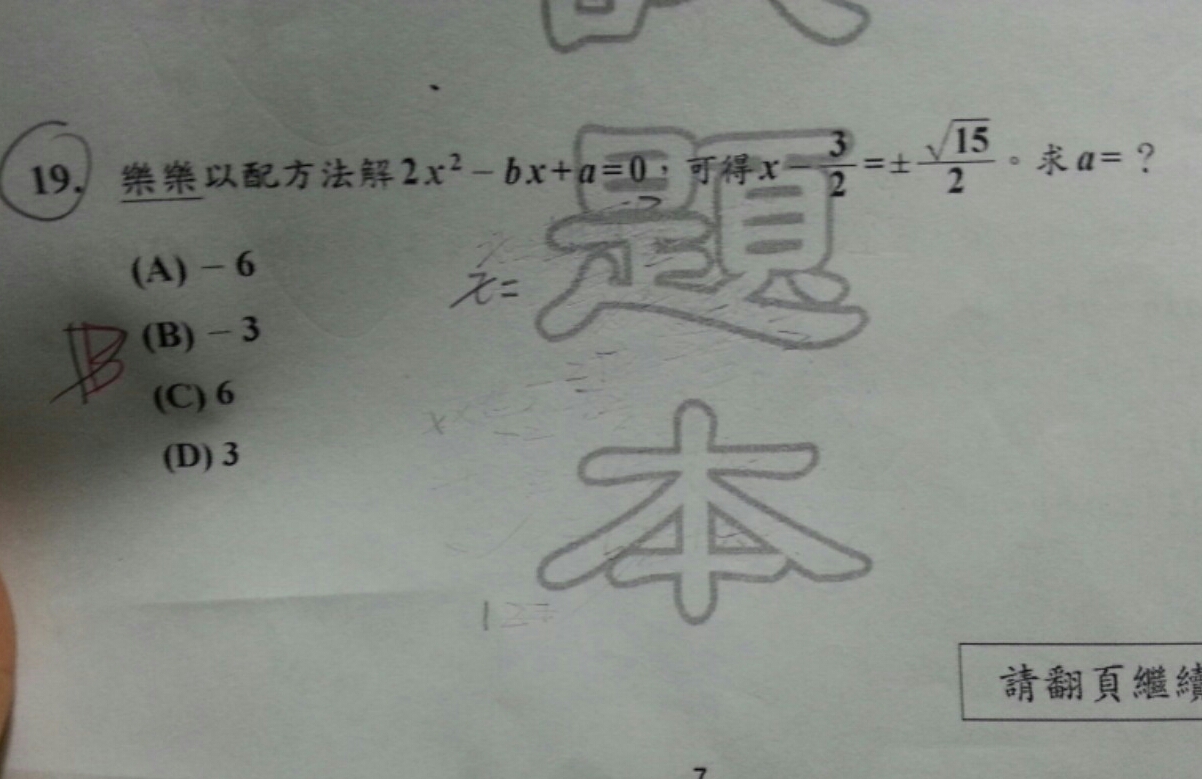 19. 樂樂以配方法解2x² - bx + a = 0，可得x - 3/2 = ± √15/2。求a = ？
(A) - 6
x=
B (B) - 3
(C) 6
(D) 3
題
本
請翻頁繼續
7